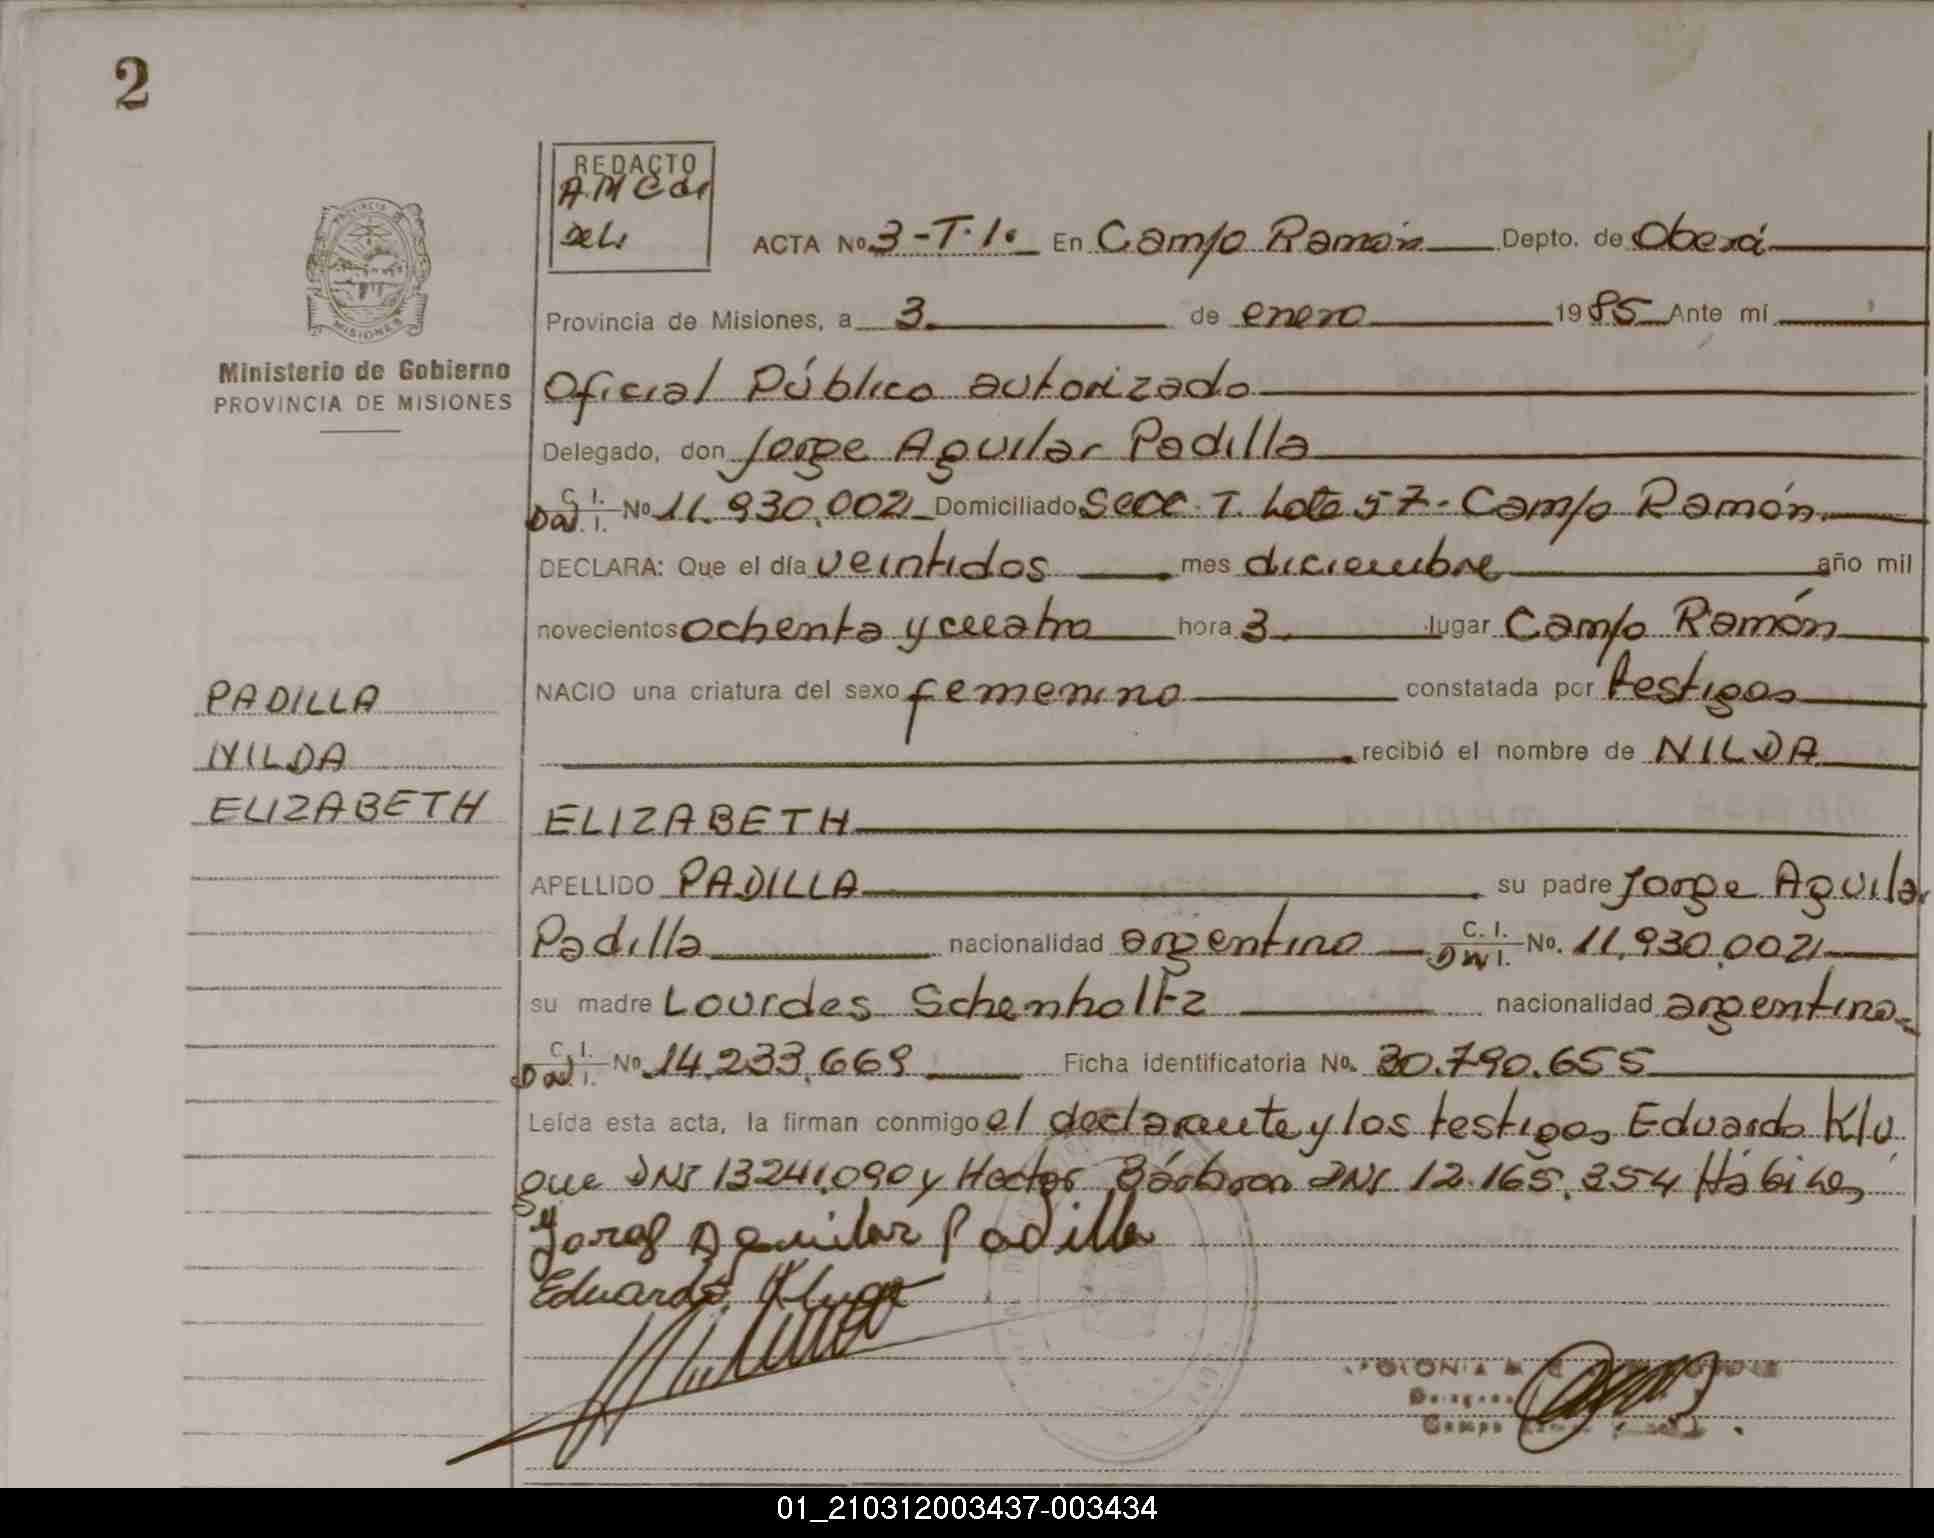 2
REDACTO
ACTA No 3-T.1. En Campo Ramón Depto. de Oberá
Provincia de Misiones, a 3 de enero 1985 Ante mí
PROVINCIA
MISIONES
Ministerio de Gobierno
PROVINCIA DE MISIONES
Oficial Público autorizado
Delegado, don Jorge Aguilar Padilla
C. I.
DNI. No 11.930.002 Domiciliado Secc. T. Lote 57 - Campo Ramón
DECLARA: Que el día veintidos mes diciembre año mil
novecientos ochenta y cuatro hora 3 lugar Campo Ramón
NACIO una criatura del sexo femenino constatada por testigos
recibió el nombre de NILDA
ELIZABETH
PADILLA
NILDA
ELIZABETH
APELLIDO PADILLA su padre Jorge Aguilar
Padilla nacionalidad argentino C. I. DNI. No. 11.930.002
su madre Lourdes Schenholtz nacionalidad argentina
C. I. DNI. No 14.233.669 Ficha identificatoria No. 30.790.655
Leída esta acta, la firman conmigo el declarante y los testigos Eduardo Klu
gue DNI 13241.090 y Hector DNI 12.165.354 Hábiles
Jorge Aguilar Padilla
Eduardo Kluge
Campo
01_210312003437-003434